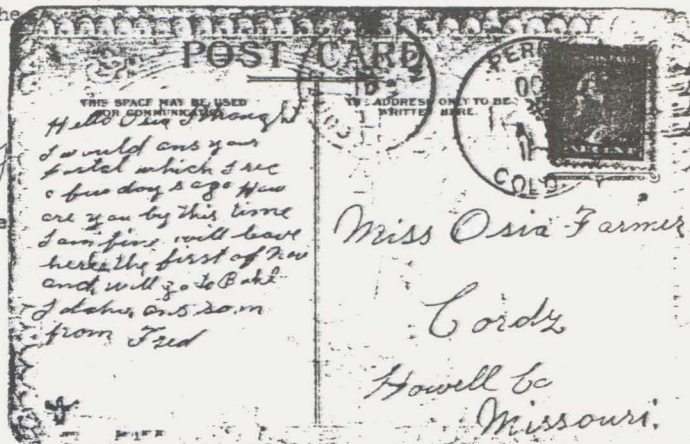 the
POST CARD
THIS SPACE MAY BE USED
FOR COMMUNICATION
THE ADDRESS ONLY TO BE
WRITTEN HERE.
Hello Osia I thought
I would ans your
postal which I rec
a few days ago How
are you by this time
I am fine will leave
here the first of Nov
and will go to
Idaho ans soon
from Fred
COLO.
Miss Osia Farmer
Cordz
Howell Co
Missouri.